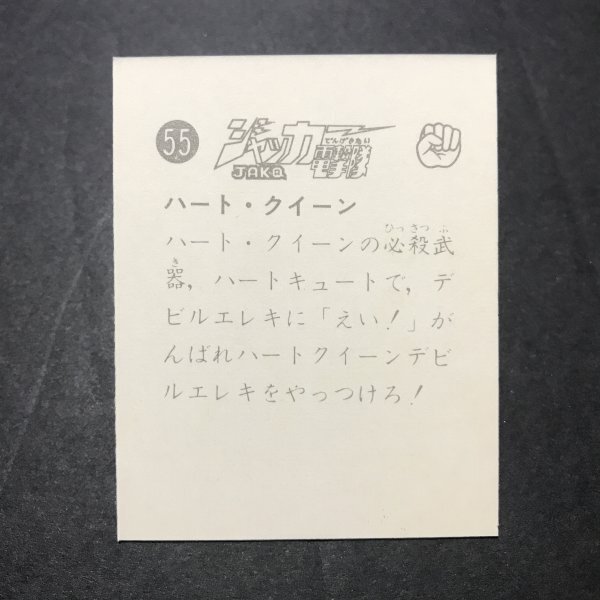 55
ジャッカー電撃隊
でんげきたい
JAKQ
ハート・クイーン
ハート・クイーンの必殺武
ひっさつ ぶ
器，ハートキュートで，デ
き
ビルエレキに「えい！」が
んばれハートクイーンデビ
ルエレキをやっつけろ！